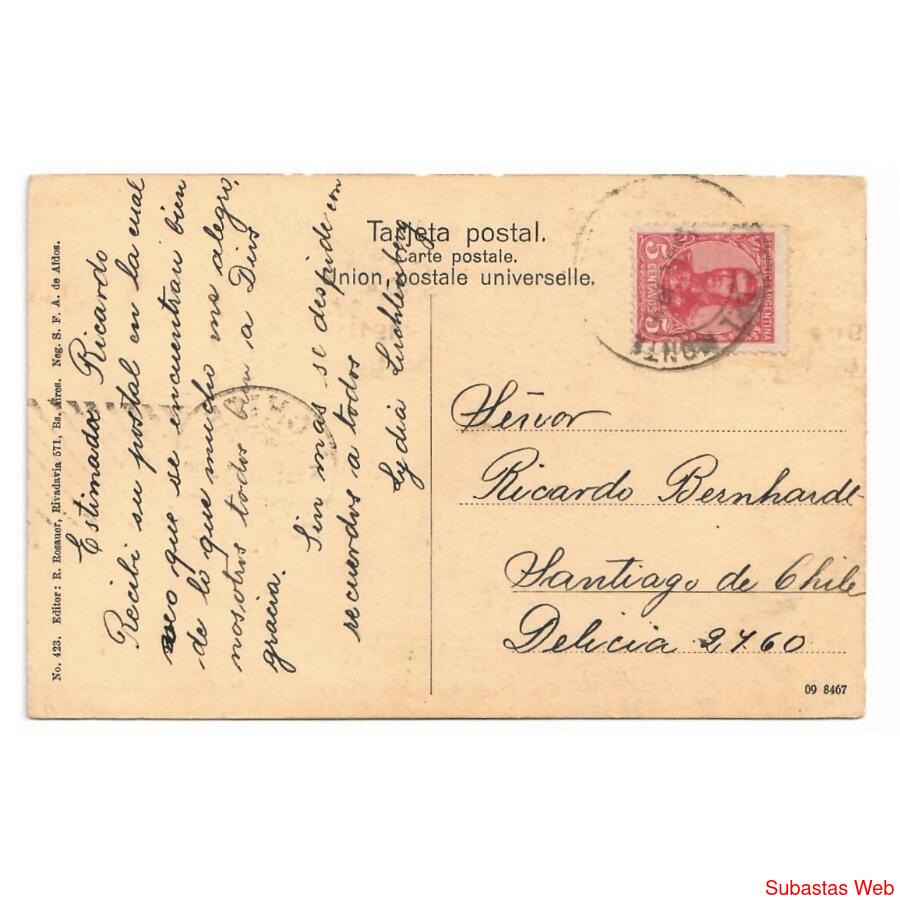 Tarjeta postal.
Carte postale.
Union postale universelle.
No. 423. Editor: R. Rosauer, Rivadavia 571, Bs. Aires. Neg. S. F. A. de Afdos.
Estimado Ricardo
Recibi su postal en la cual
veo que se encuentran bien
de lo que mucho me alegro,
nosotros todos bien a Dios
gracia.
Sin mas se despide con
recuerdos a todos
Lydia
REPUBLICA ARGENTINA
5 CENTAVOS 5
MONTE
Señor
Ricardo Bernhardt
Santiago de Chile
Delicia 2760
09 8467
Subastas Web